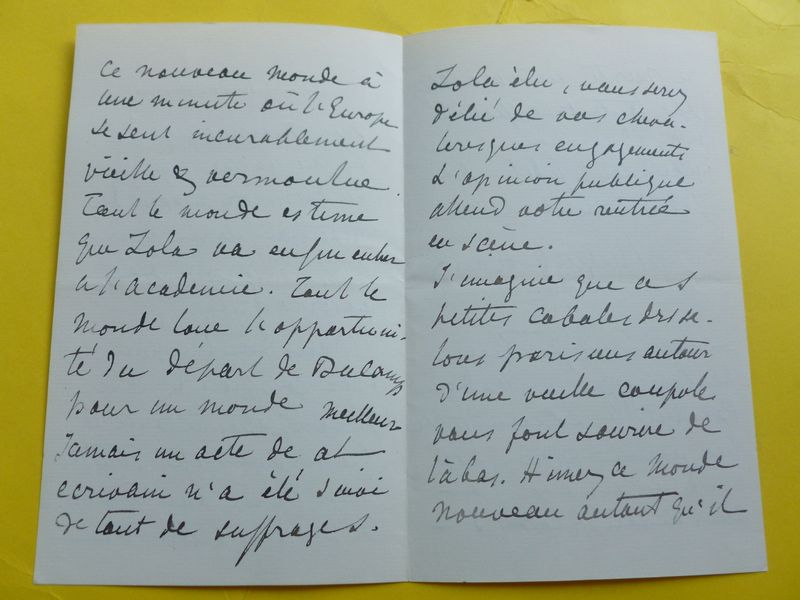 ce nouveau monde à
une minute où l'Europe
se sent incurablement
vieille & vermoulue.
Tout le monde estime
que Zola va enfin entrer
à l'académie. Tout le
monde loue l'opportuni-
té du départ de Ducamp
pour un monde meilleur
Jamais un acte de cet
écrivain n'a été suivi
de tant de suffrages.
Zola élu, vous serez
délié de vos cheva-
leresques engagements
L'opinion publique
attend votre rentrée
en scène.
J'imagine que ces
petites cabales des sa-
lons parisiens autour
d'une vieille coupole
vous font sourire de
là bas. Aimez ce monde
nouveau autant qu'il